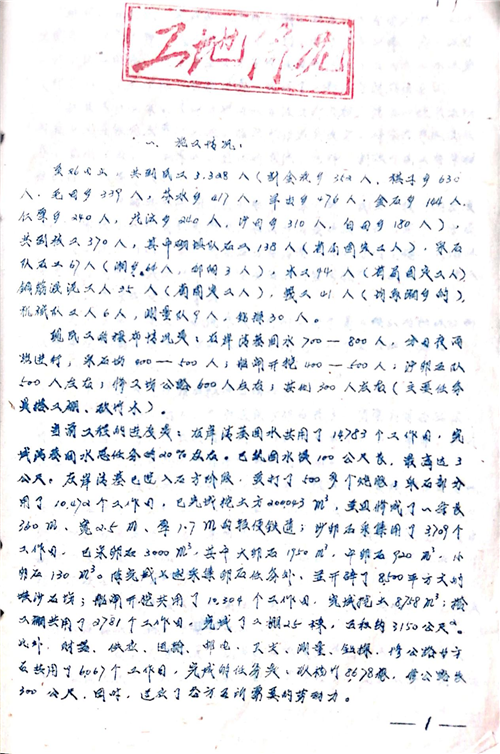 工地情况
一、施工情况：
共到民工3,328人（割金夜乡 352人，栋子乡630
人，毛田乡339人，苏水乡217人，羊出乡476人，金石乡166人，
乡240人，乡240人，沙田乡310人，白田乡180人），
共到技工370人，其中砌磡队石工138人（省局固定工人），采石
队石工67人（湖乡66人，邮闸3人），水工94人（省局固定工人）
钢筋混泥工人35人（省固定工人），铁工41人（均是湖乡的），
机械队工人6人，测量队9人，钻探30人。
现民工的操布情况是：左岸滚基围水700—800人，分日夜两
班进行，采石场400—500人；船闸开挖400—500人；沙卵石队
500人左右；修工场公路600人左右；其他300人左右（主要任务
是搭工棚、砍竹木）。
当前工程的进度是：左岸滚基围水共用了14783个工作日，完
成滚基围水总任务的20%左右。已筑围水堤100公尺长，最高达3
公尺。左岸滚基已进入石方阶段，并打了500多个炮眼；采石部分
用了10,472个工作日，已完成挖土方20043m³，并且修成了一条长
360m、宽2.5m、零1.7m的轻便铁道；沙卵石采集用了3709个
工作日，已采卵石3000m³，其中大卵石1950m³，中卵石920m³，小
卵石130m³。除完成上述采集卵石任务外，并开辟了8500平方丈的
堆沙石场；船闸开挖共用了10,304个工作日，完成挖土8758m³；搭
工棚共用了2781个工作日，完成了工棚25栋，面积约3150公尺²。
此外，财器、供应、运输、邮电、工具、测量、钻探、修公路等方
面共用了6067个工作日，完成的任务是：砍楠竹8678根，修公路长
300公尺，同时，适应了各方面所需要的劳动力。
— 1 —